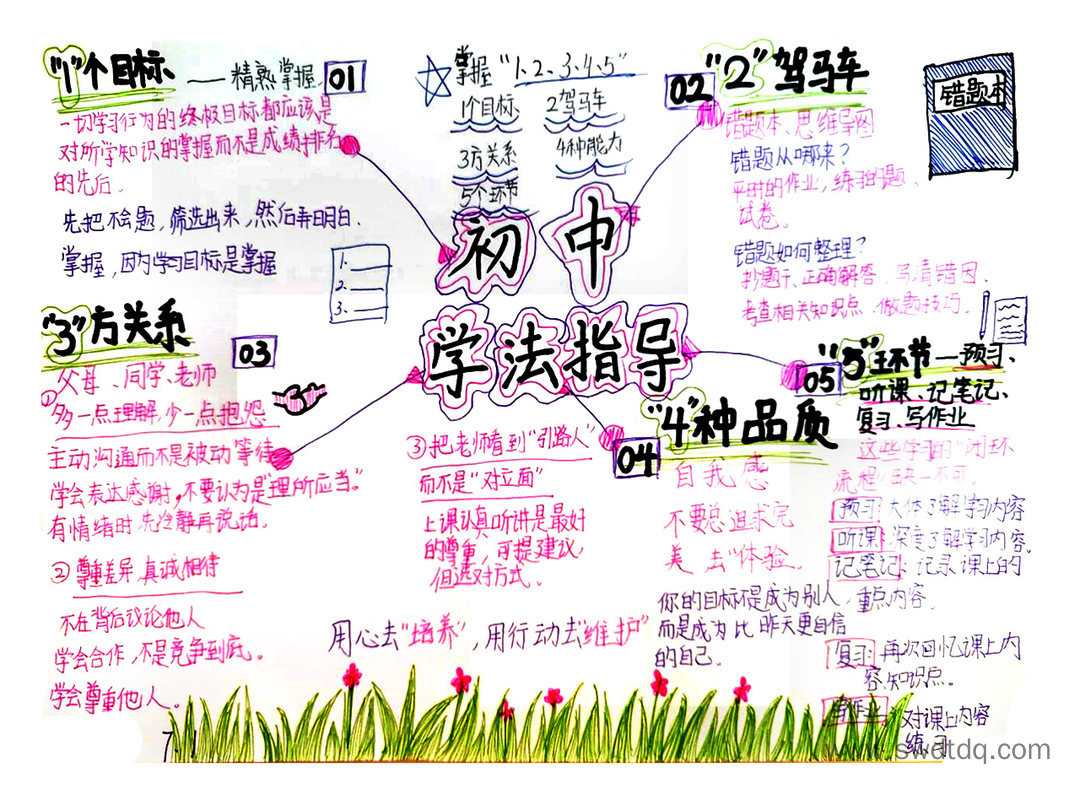 "1"个目标
——精熟掌握
01
一切学习行为的终极目标都应该是
对所学知识的掌握而不是成绩排名
的先后。
先把不会题,筛选出来,然后弄明白.
掌握,因为学习目标是掌握
1.
2.
3.
掌握"1、2、3、4、5"
1个目标 2驾马车
3方关系 4种能力
5个环节
初中
学法指导
02
"2"驾马车
错题本
错题本、思维导图
错题从哪来?
平时的作业,练习的题、
试卷。
错题如何整理?
抄题干、正确解答,写清错因、
考查相关知识点、做题技巧。
"3"方关系
03
父母、同学、老师
①多一点理解,少一点抱怨
主动沟通而不是被动等待
学会表达感谢,不要认为是"理所应当"。
有情绪时先冷静再说话。
②尊重差异,真诚相待
不在背后议论他人
学会合作,不是竞争到底。
学会尊重他人。
③把老师看到"引路人"
而不是"对立面"
上课认真听讲是最好
的尊重,可提建议,
但选对方式。
04
"4"种品质
自我感
不要总追求完
美 去"体验。
你的目标不是成为别人,
而是成为比昨天更自信
的自己。
05
"5"环节—预习、
听课、记笔记、
复习、写作业
这些学习的"闭环
流程"缺一不可。
预习:大体了解学习内容
听课:深度了解学习内容。
记笔记:记录课上的
重点内容。
复习:再次回忆课上内
容、知识点。
写作业:对课上内容
练习
用心去"培养",用行动去"维护"
7.1
www.swdtdq.com